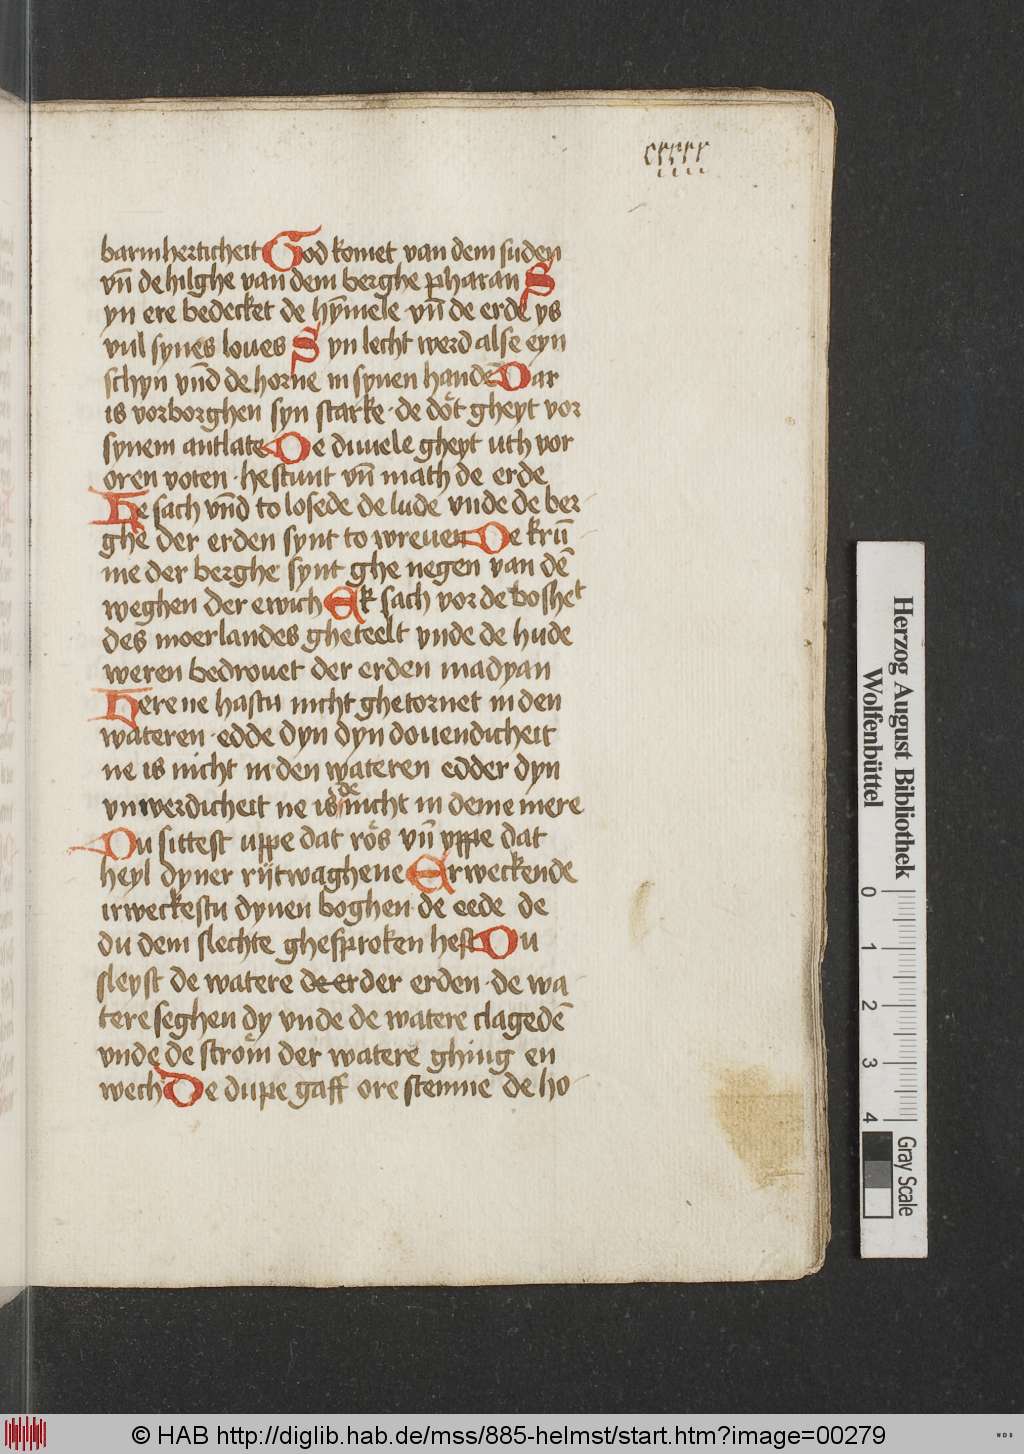 cxxxx
iiii
barmherticheit God komet van dem suden
vn̄ de hilghe van dem berghe pharan S
yn ere bedecket de hȳmele vn̄ de erde ys
vul synes loues Syn lecht werd alse eyn
schyn vn̄d de horne in synen handē Dar
is vorborghen syn starke · de dot gheyt vor
synem antlate De duuele gheyt uth vor
oren voten · he stunt vn̄ math de erde
He sach vn̄d to losede de lude vnde de ber
ghe der erden synt to wreuen De krū
me der berghe synt ghe neghen van dē
weghen der ewich Ek sach vor de boshet
des moerlandes gheteelt vnde de hude
weren bedrouet der erden madyan
Here ne hastu nicht ghetornet in den
wateren · edde dyn dyn douendicheit
ne is nicht in den wateren edder dyn
vnwerdicheit ne is de nicht in deme mere
Du sittest uppe dat ros vn̄ vppe dat
heyl dyner rijtwaghene Erweckende
irweckestu dynen boghen · de eede de
du dem slechte ghesproken hest Du
sleyst de watere de er der erden · de wa
tere seghen dy vnde de watere clagedē
vnde de strom der watere ghing en
wech De dupe gaff ore stemme de ho-
Herzog August Bibliothek
Wolfenbüttel
0 1 2 3 4
Gray Scale
© HAB http://diglib.hab.de/mss/885-helmst/start.htm?image=00279